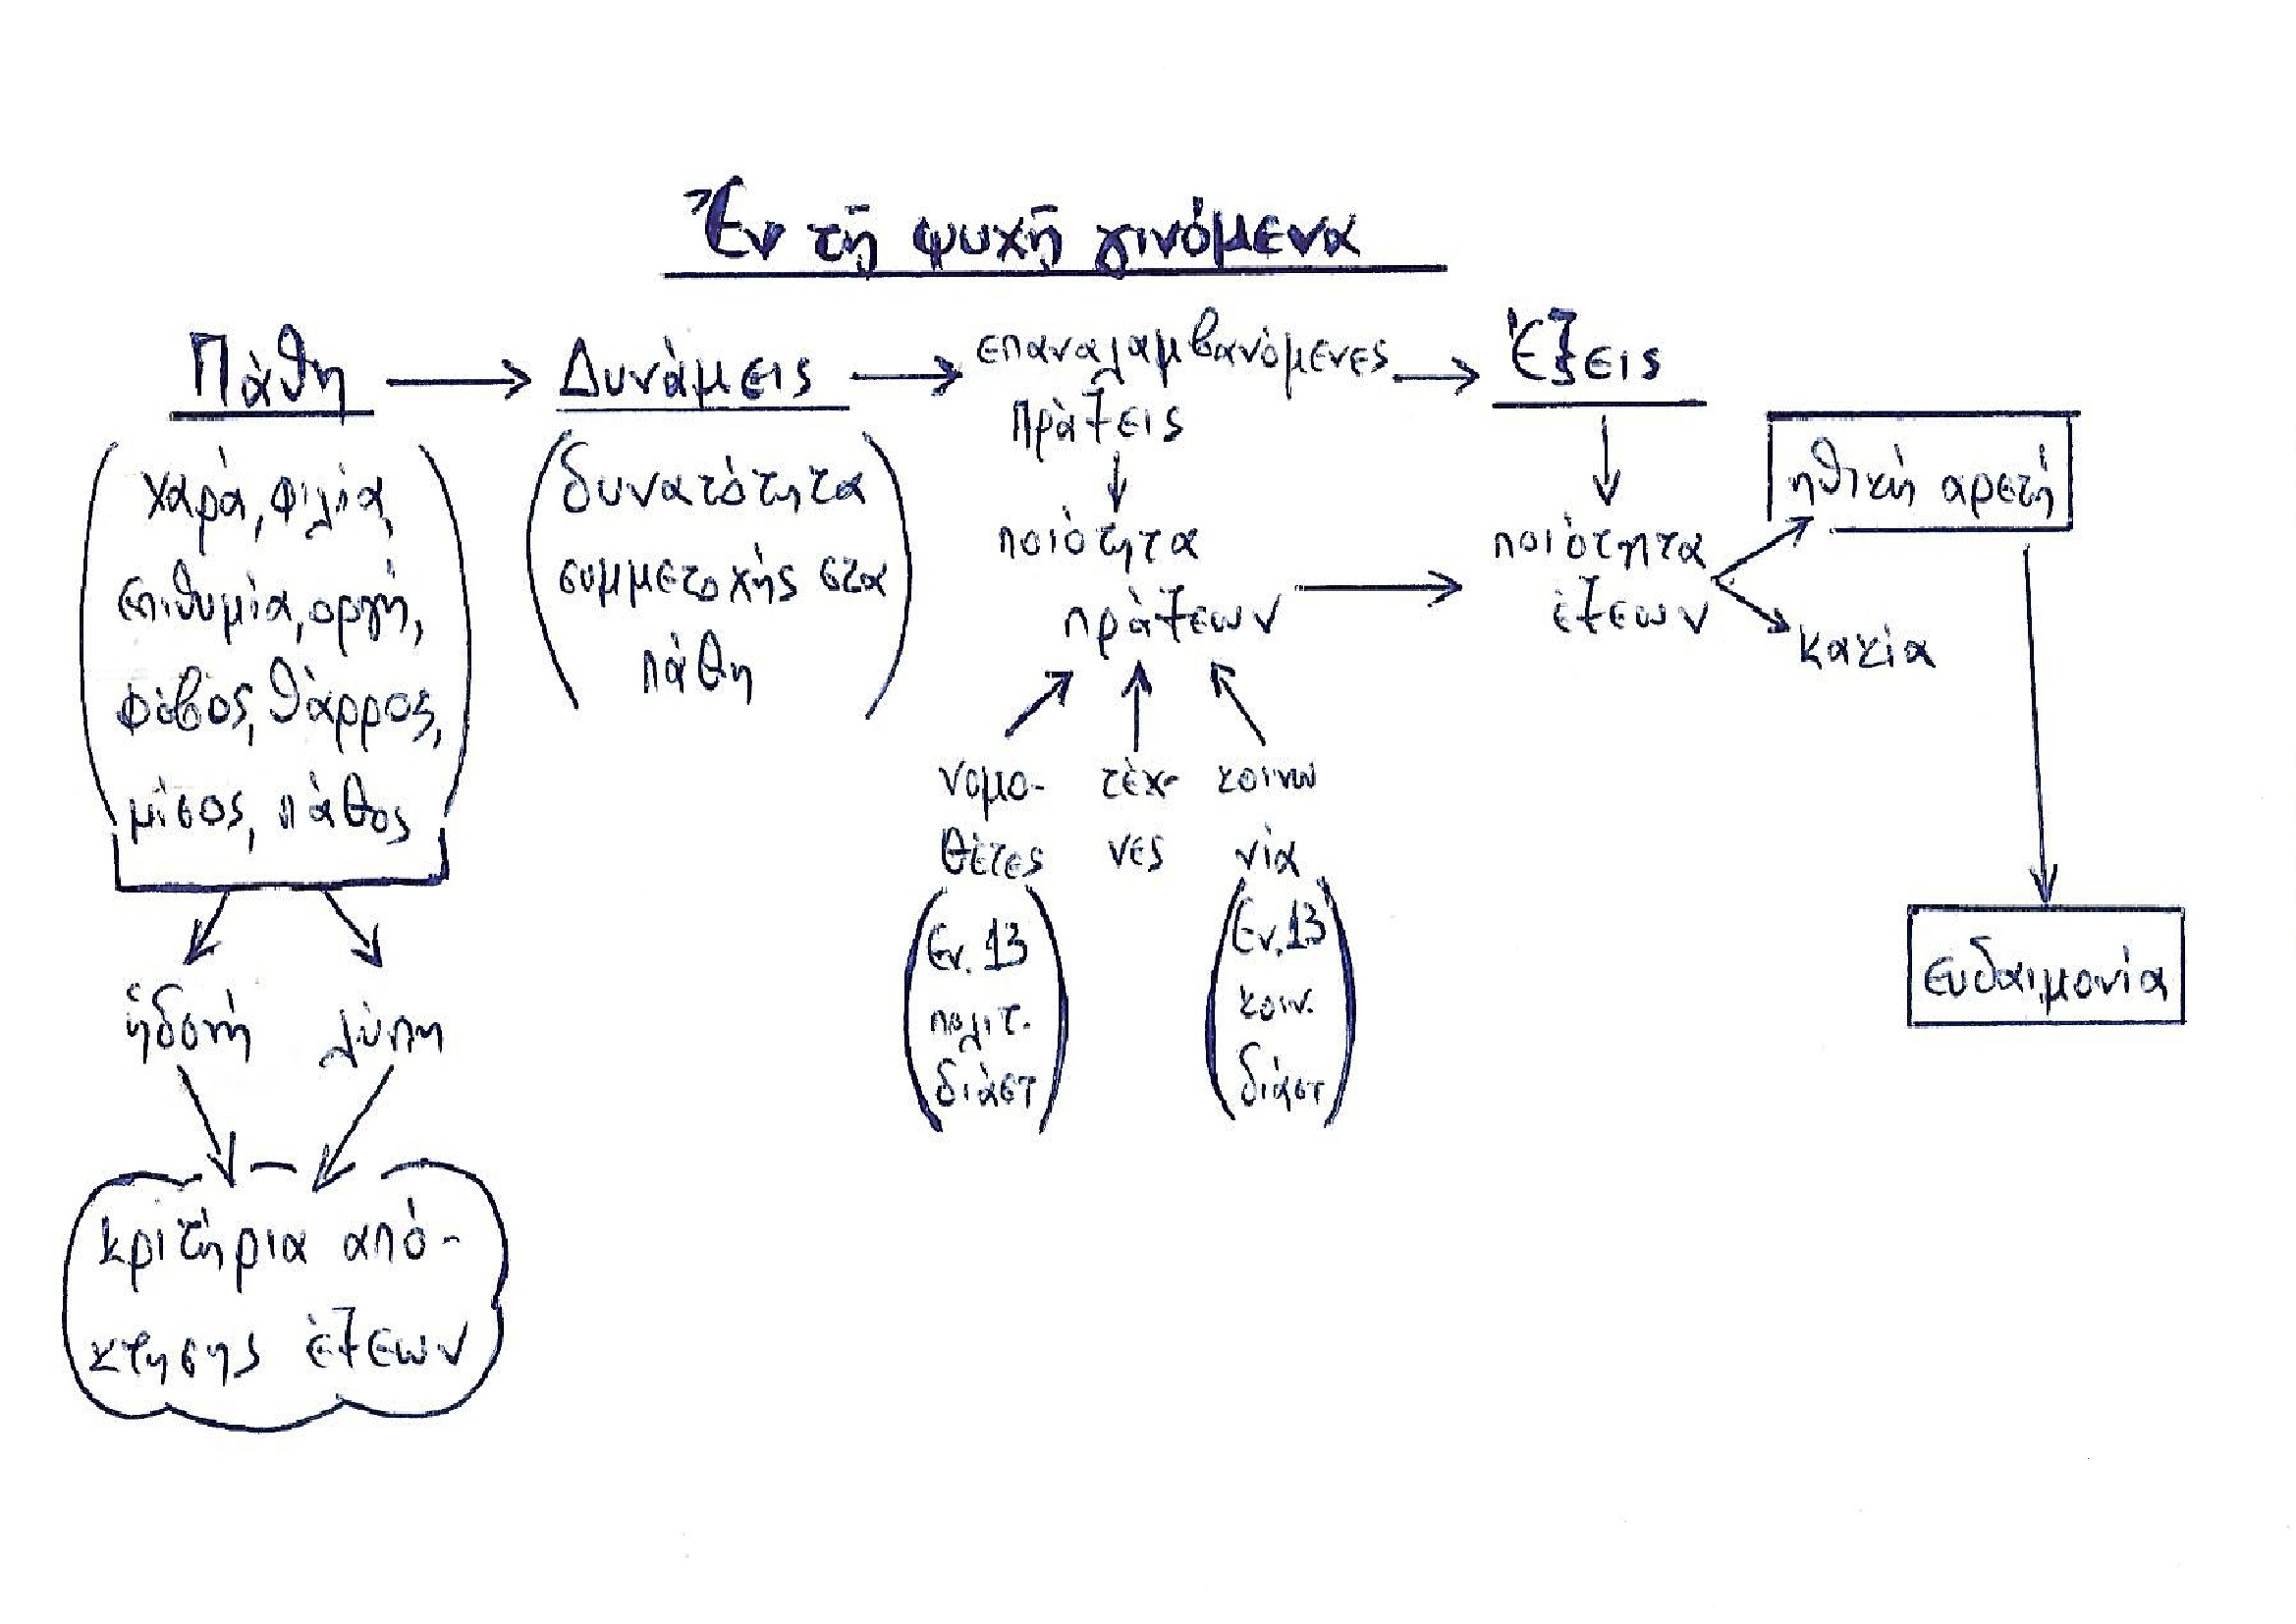 Ἐν τῇ ψυχῇ γινόμενα
Πάθη → Δυνάμεις → επαναλαμβανόμενες πράξεις → Ἕξεις
(χαρά, φιλία,
επιθυμία, οργή,
φόβος, θάρρος,
μίσος, πάθος)
ἡδονή λύπη
κριτήρια από-
κτησης έξεων
(δυνατότητα
συμμετοχής στα
πάθη)
ποιότητα
πράξεων
νομο-
θέτες
(Εν. 13
πολιτ.
διάστ)
τέχ-
νες
κοινω
νία
(Εν. 13
κοιν.
διάστ)
ποιότητα
έξεων
ηθική αρετή
κακία
ευδαιμονία